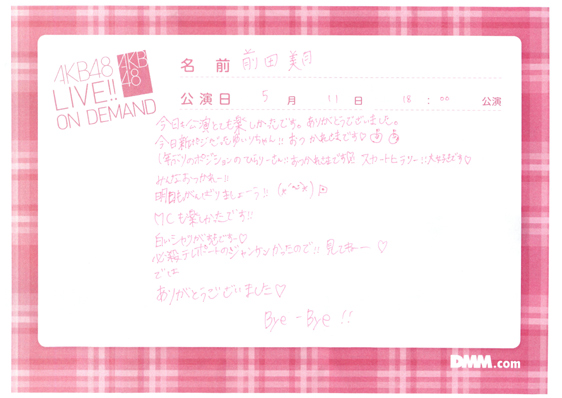 AKB48
LIVE!!
ON DEMAND
AKB
48
名 前 前田 美月
公演日 5 月 11 日 18 : 00 公演
今日も公演とても楽しかったです。ありがとうございました。
今日新ポジだったゆいりちゃん!! おつかれさまです♡
1年ぶりのポジションのひらりーさんおつかれさまです スカートヒラリー!! 大好きです♡
みんなおつかれー!!
明日もがんばりましょう!!
MCも楽しかったです!!
白いシャツが
必殺テレポートのジャンケンかったので!! 見てねー ♡
では
ありがとうございました♡
Bye-Bye !!
DMM.com